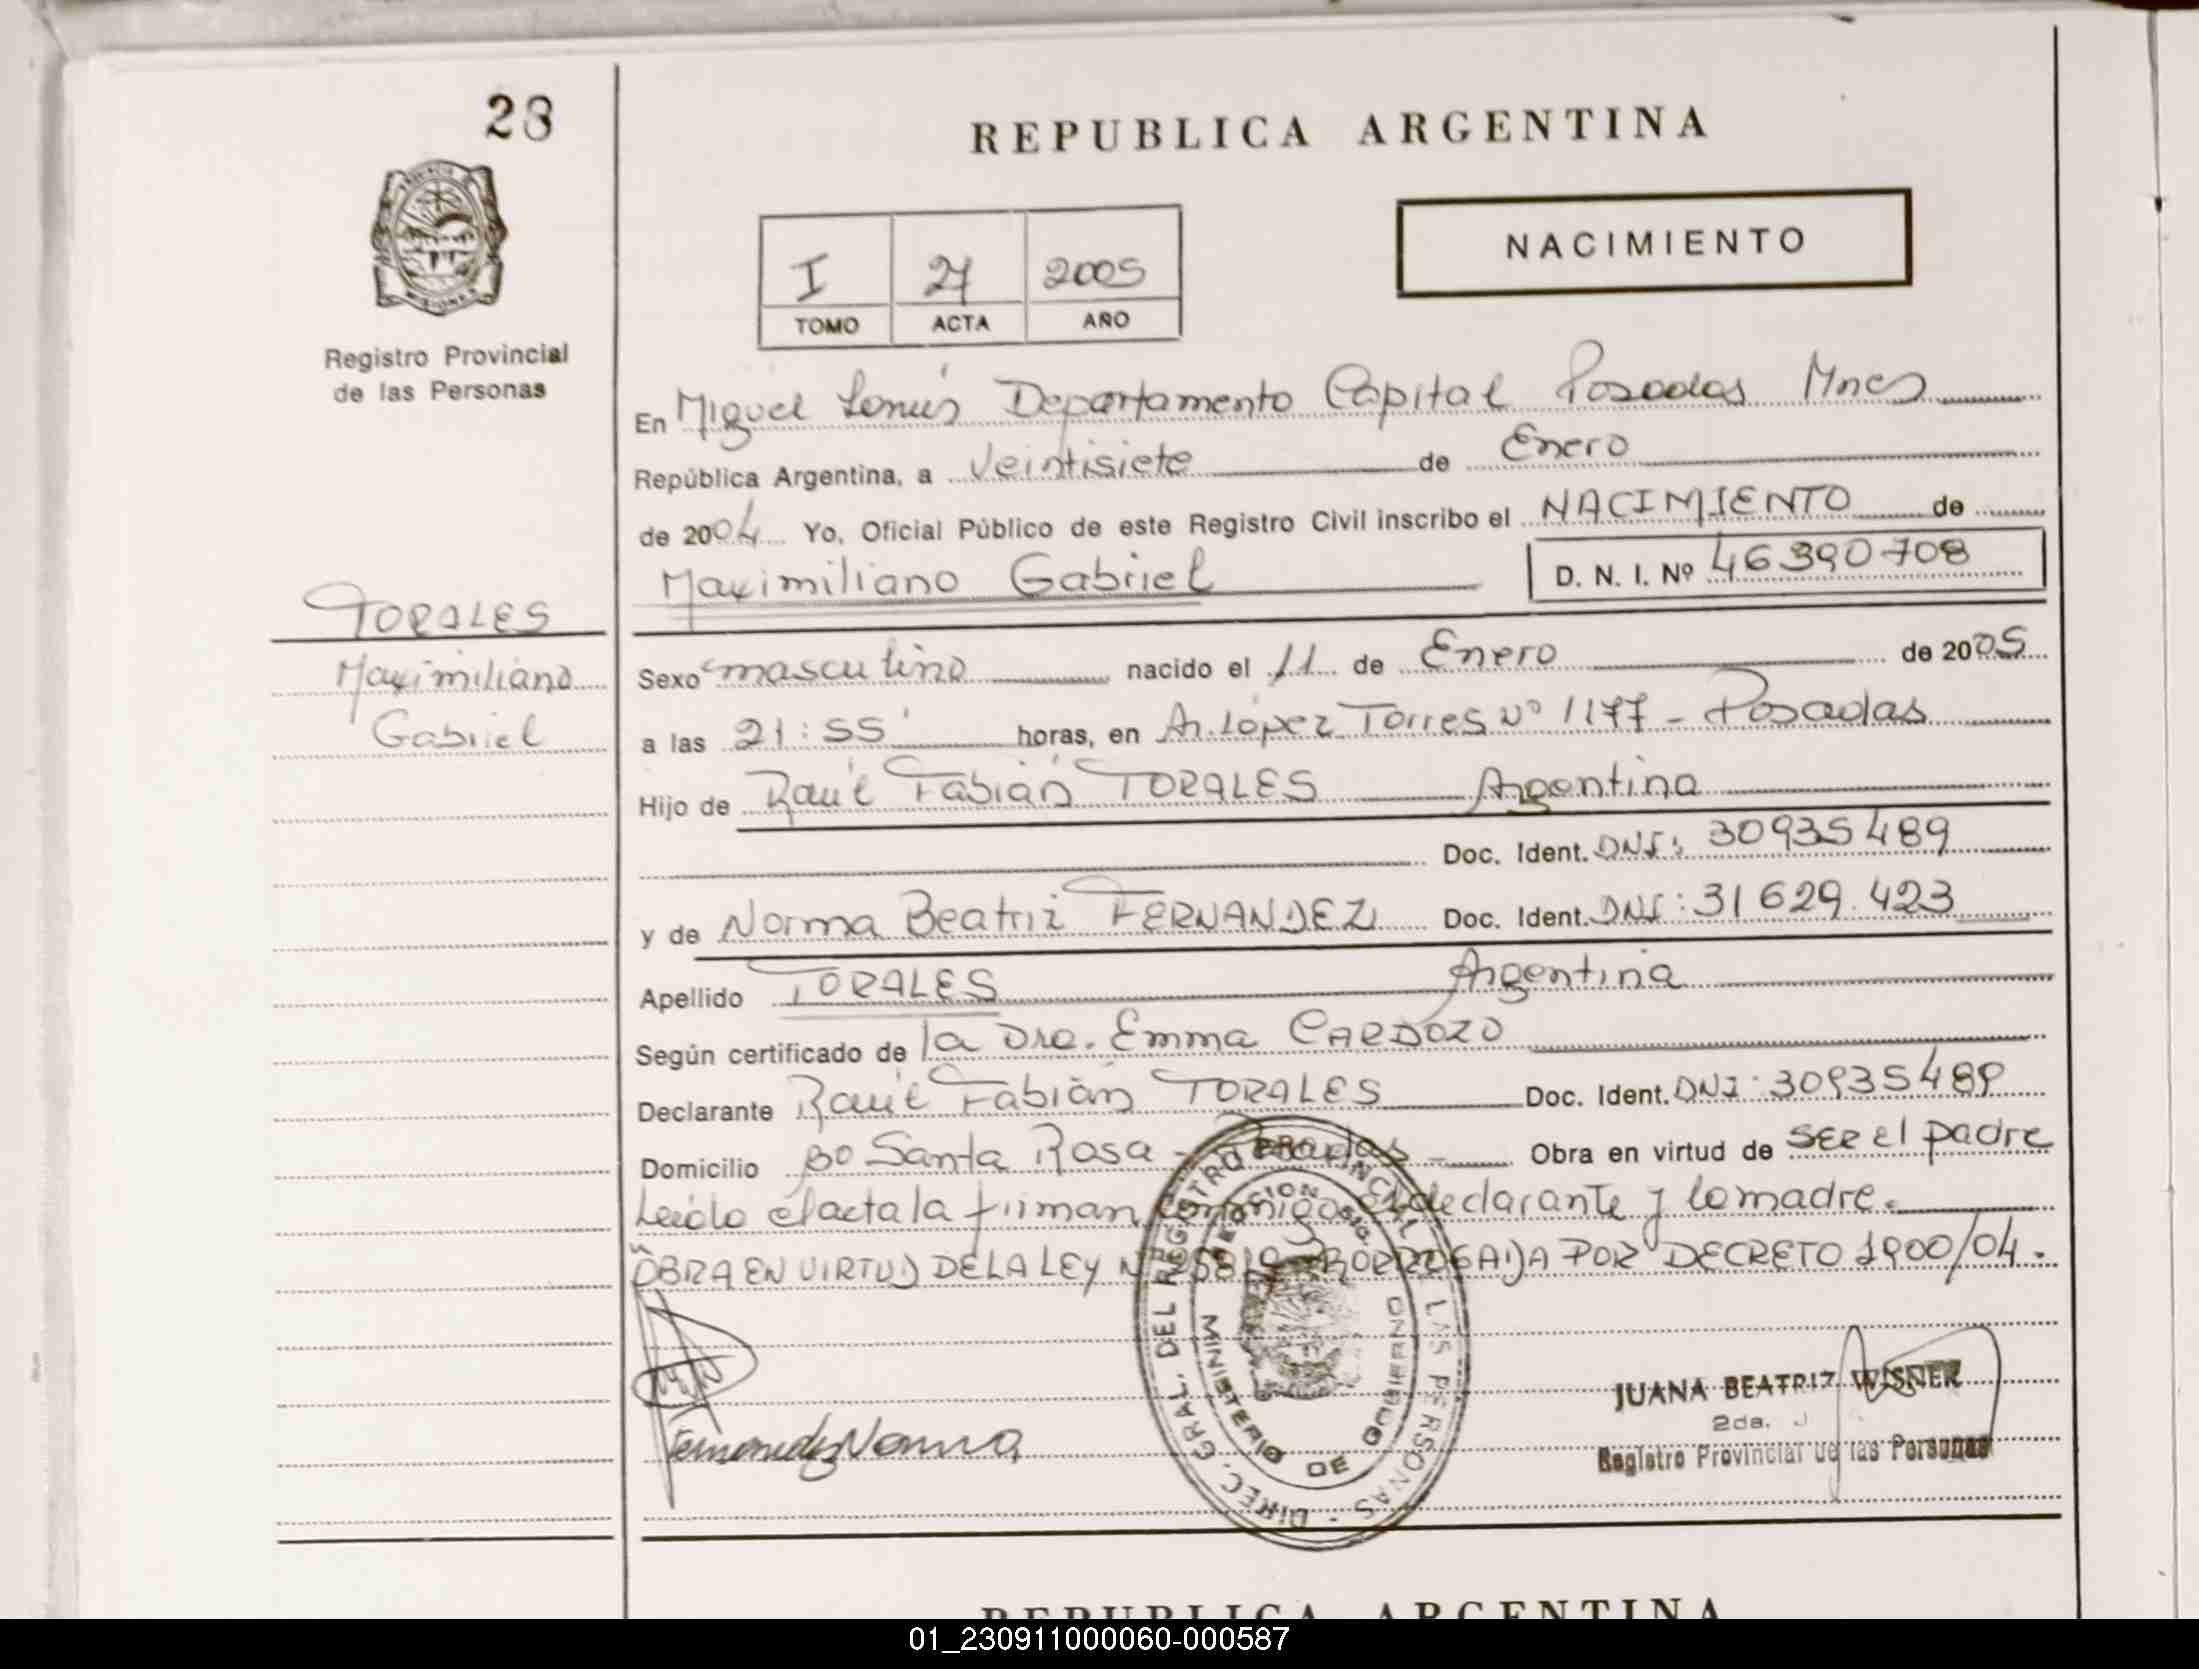 28
REPUBLICA ARGENTINA
NACIMIENTO
I 27 2005
TOMO ACTA AÑO
Registro Provincial
de las Personas
En Miguel Lanús Departamento Capital Posadas Mnes
República Argentina, a Veintisiete de Enero
de 2004 Yo, Oficial Público de este Registro Civil inscribo el NACIMIENTO de
Maximiliano Gabriel D. N. I. Nº 46390708
TORALES
Maximiliano
Gabriel
Sexo masculino nacido el 11 de Enero de 2005
a las 21:55 horas, en Av. López Torres Nº 1177 - Posadas
Hijo de Raúl Fabián TORALES Argentina
Doc. Ident. DNI: 30935489
y de Norma Beatriz FERNANDEZ Doc. Ident. DNI: 31629.423
Apellido TORALES Argentina
Según certificado de la Dra. Emma CARDOZO
Declarante Raúl Fabián TORALES Doc. Ident. DNI: 30935489
Domicilio Bo Santa Rosa - Posadas - Obra en virtud de SER el padre
Leída el acta la firman conmigo el declarante y la madre.
OBRA EN VIRTUD DE LA LEY N 25819 PRORROGADA POR DECRETO 1900/04.
DIREC. GRAL. DEL REGISTRO PROVINCIAL LAS PERSONAS
MINISTERIO DE GOBIERNO
Fernandez Norma
JUANA BEATRIZ WISNER
2da. J
Registro Provincial de las Personas
REPUBLICA ARGENTINA
01_230911000060-000587